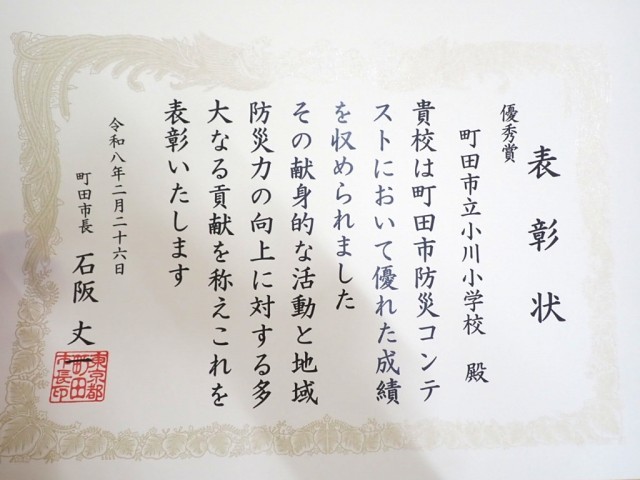 表彰状
優秀賞
町田市立小川小学校 殿
貴校は町田市防災コンテ
ストにおいて優れた成績
を収められました
その献身的な活動と地域
防災力の向上に対する多
大なる貢献を称えこれを
表彰いたします
令和八年二月二十六日
町田市長 石阪 丈一
東京都
町田
市長印